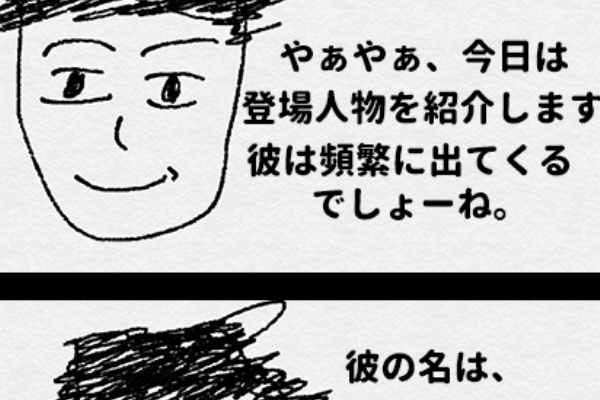 やぁやぁ、今日は
登場人物を紹介します
彼は頻繁に出てくる
でしょーね。
彼の名は、